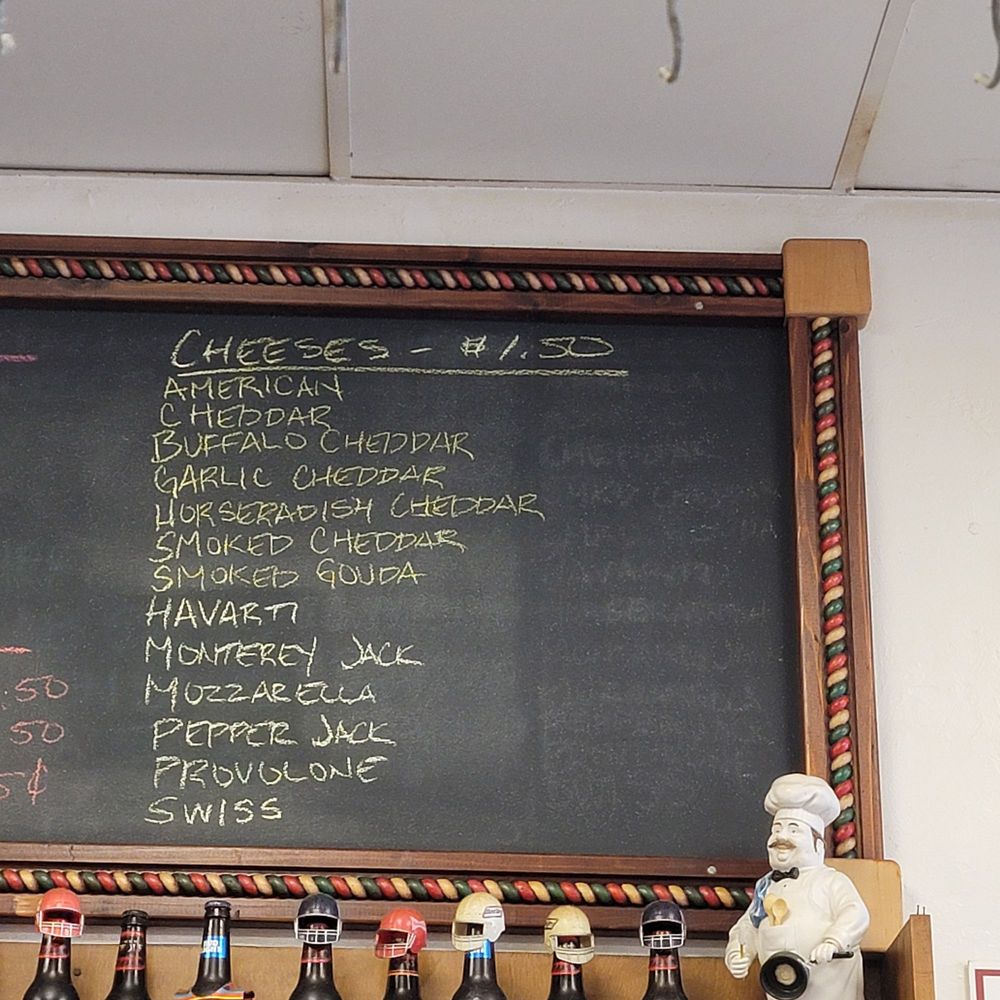 CHEESES - $1.50
AMERICAN
CHEDDAR
BUFFALO CHEDDAR
GARLIC CHEDDAR
HORSERADISH CHEDDAR
SMOKED CHEDDAR
SMOKED GOUDA
HAVARTI
MONTEREY JACK
.50
MOZZARELLA
50
PEPPER JACK
5¢
PROVOLONE
SWISS